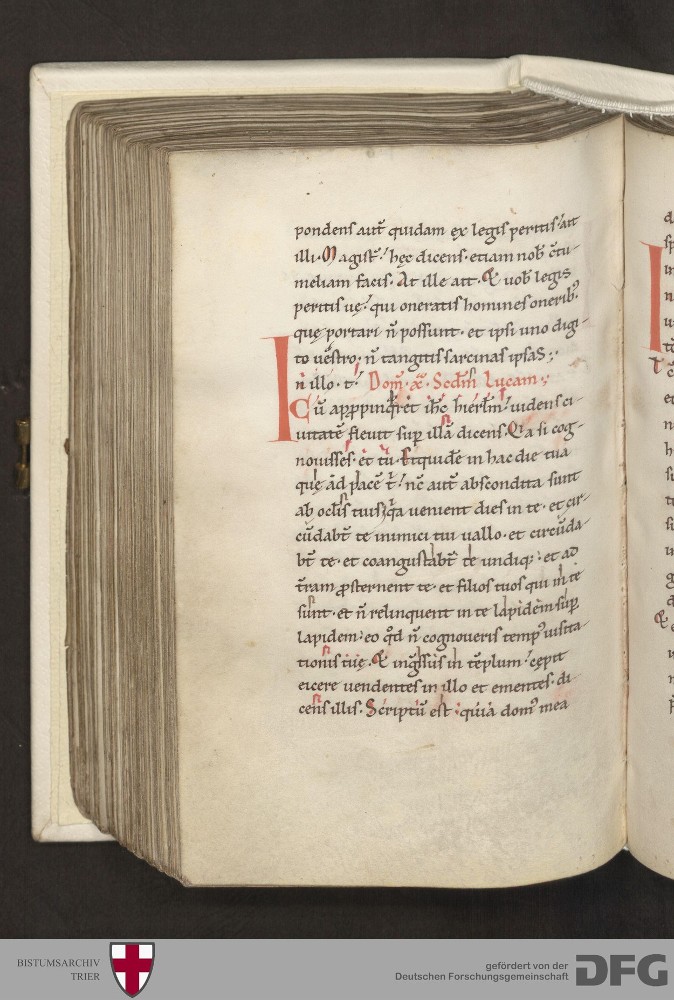 pondens aut̄ quidam ex legis peritis ait
illi. Magist̄. hęc dicens. etiam nob̄ c̄tu-
meliam facis. At ille ait. Et uob̄ legis
peritis uę. qui oneratis homines onerib;
quę portari n̄ possunt. et ipsi uno digi-
to uestro. n̄ tangitis sarcinas ipsas;
In illo. t. Dom̄. x. Scd̄m Lucam;
Cū appropinq̄ret ih̄c hierl̄m. uidens ci-
uitatē fleuit sup illā dicens. Q̄a si cog-
nouisses. et tu. Et quidē in hac die tua
quę ad pacē t̄. nc̄ aut̄ abscondita sunt
ab ocl̄is tuis. q̄a uenient dies in te. et cir-
cūdabt̄ te inimici tui uallo. et circūda-
bt̄ te. et coangustabt̄ te undiq;. et ad
t̄ram ꝓsternent te. et filios tuos qui in te
sunt. et n̄ relinquent in te lapidem sup
lapidem. eo qd̄ n̄ cognoueris temp᾽ uisita-
tionis tuę. Et ingress᾽ in templum. cępit
eicere uendentes in illo et ementes. di-
cens illis. Scriptū est. quia dom᾽ mea
BISTUMSARCHIV
TRIER
gefördert von der
Deutschen Forschungsgemeinschaft
DFG